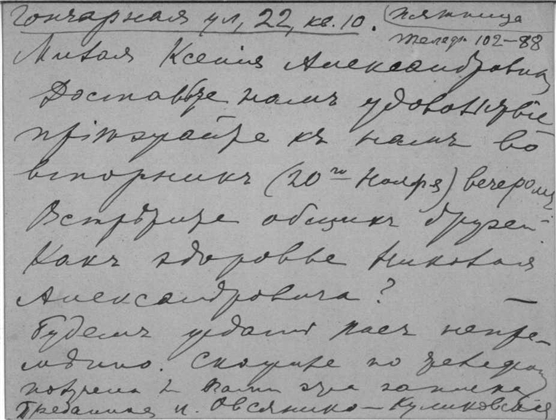 Гончарная ул., 22, кв. 10. (Пятница
Телеф. 102-88
Милая Ксенія Александровна
Доставьте намъ удовольствіе
пріѣзжайте къ намъ во
вторникъ (20го Ноября) вечеромъ
Встрѣтите общихъ друзей.
Какъ здоровье Николая
Александровича? —
Будемъ ждать васъ непре-
мѣнно. Скажите по телефону
получена ли Вами эта записка
Преданная И. Овсянико-Куликовская